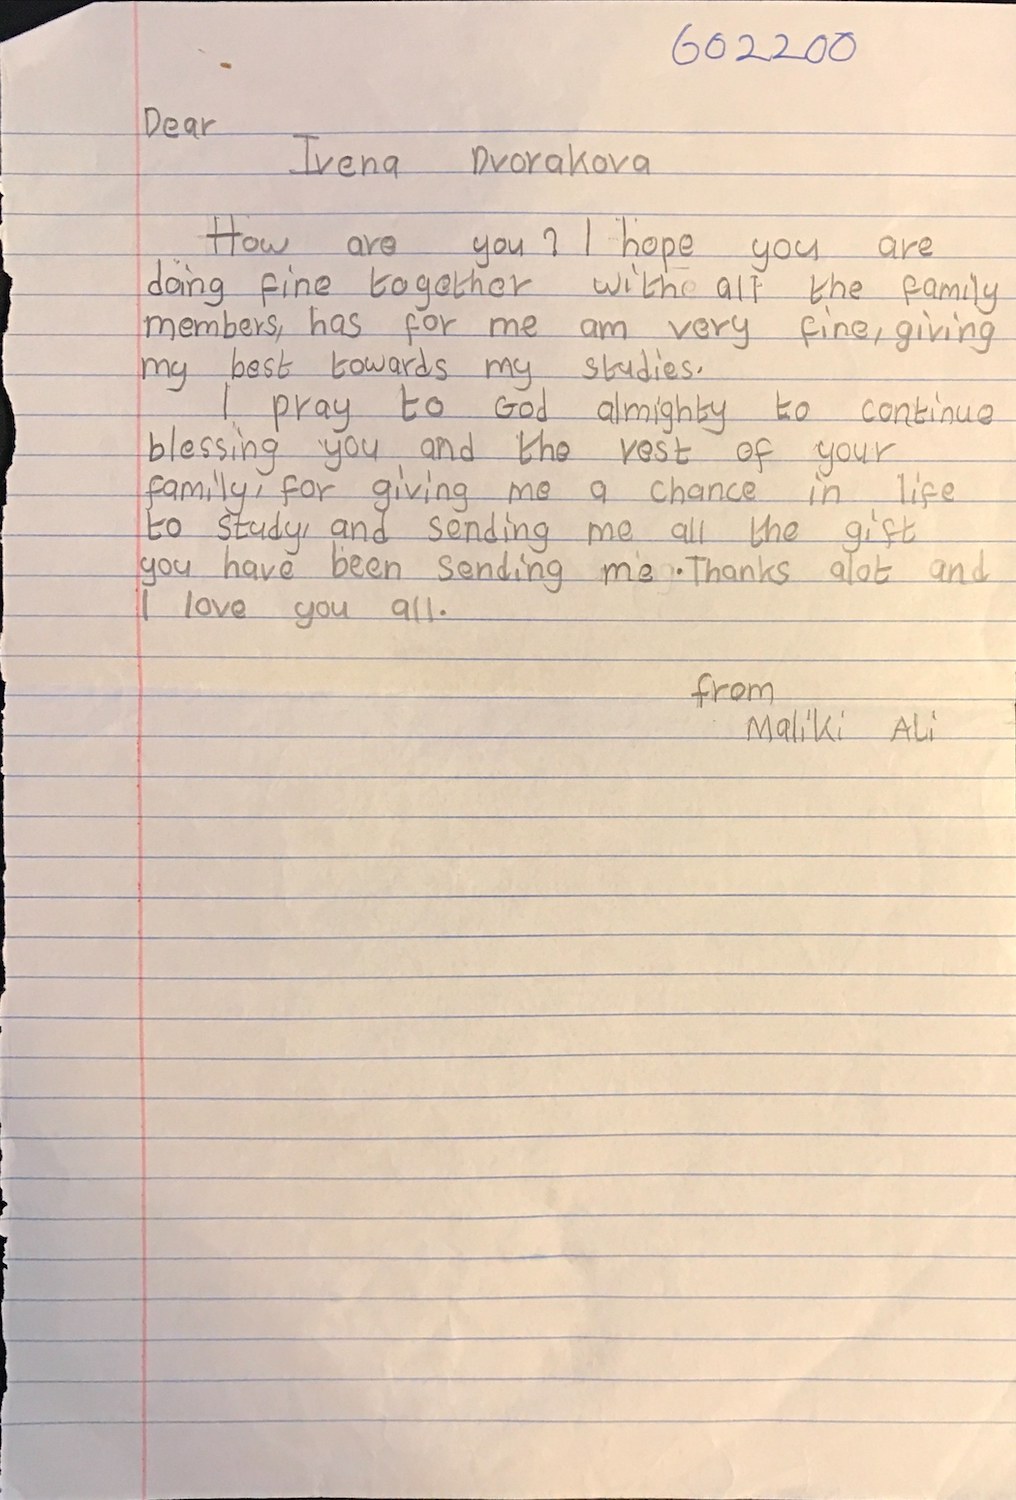 602200
Dear
Ivena Dvorakova
How are you? I hope you are
doing fine together with all the family
members, has for me am very fine, giving
my best towards my studies.
I pray to God almighty to continue
blessing you and the rest of your
family, for giving me a chance in life
to study, and sending me all the gift
you have been sending me. Thanks alot and
I love you all.
from
Maliki Ali